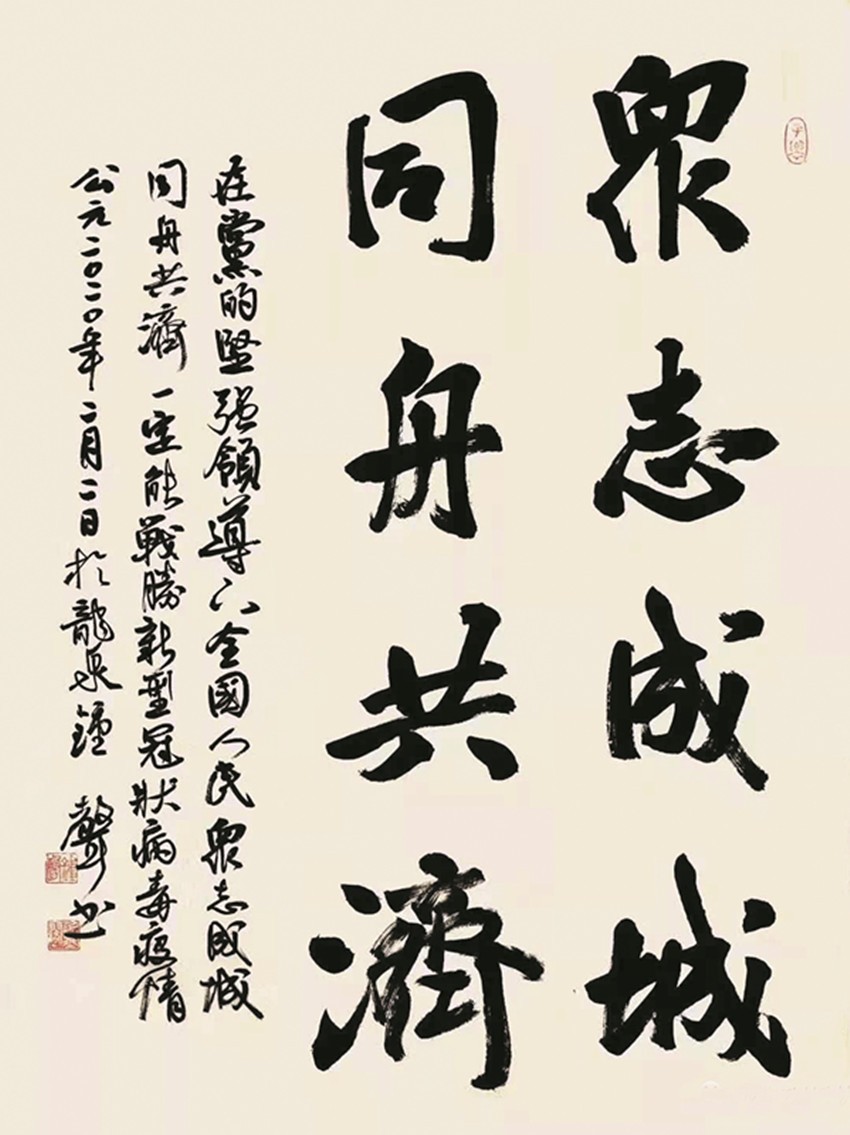 眾志成城
同舟共濟
在黨的堅强領導下全國人民眾志成城
同舟共濟一定能戰勝新型冠狀病毒疫情
公元二〇二〇年二月二日於龍泉鐘聲书